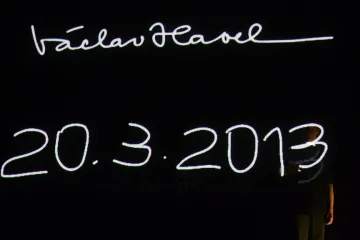 Václav Havel
20.3.2013